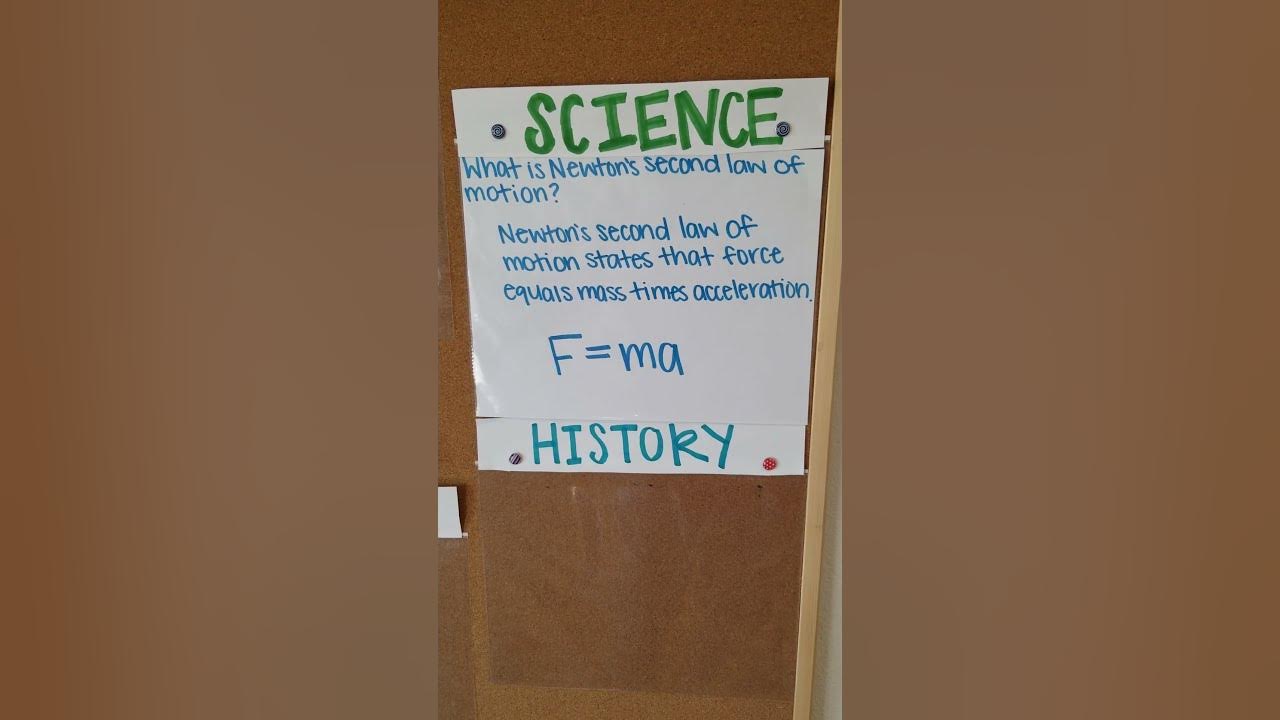 SCIENCE
What is Newton's second law of
motion?
Newton's second law of
motion states that force
equals mass times acceleration.
F=ma
HISTORY